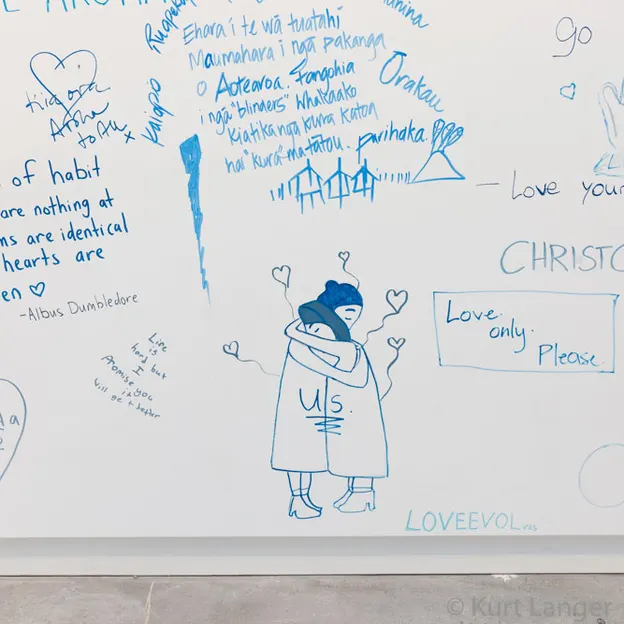 Ruapeka
Ehara i te wā tuatahi
Maumahara i ngā pakanga
o Aotearoa. Tangohia
i ngā "blinders" Whakaako
kiatika ngā kura katoa
hai "kura" mātātou.
Parihaka
Orakau
Kaiapo
Kia ora
Aroha
to tu x
of habit
are nothing at
are identical
hearts are
en
-Albus Dumbledore
Life
is
hard but
I
Promise you
it
will get better
US.
Go
- Love your
CHRISTC
Love
only.
Please.
LOVEEVOL
© Kurt Langer